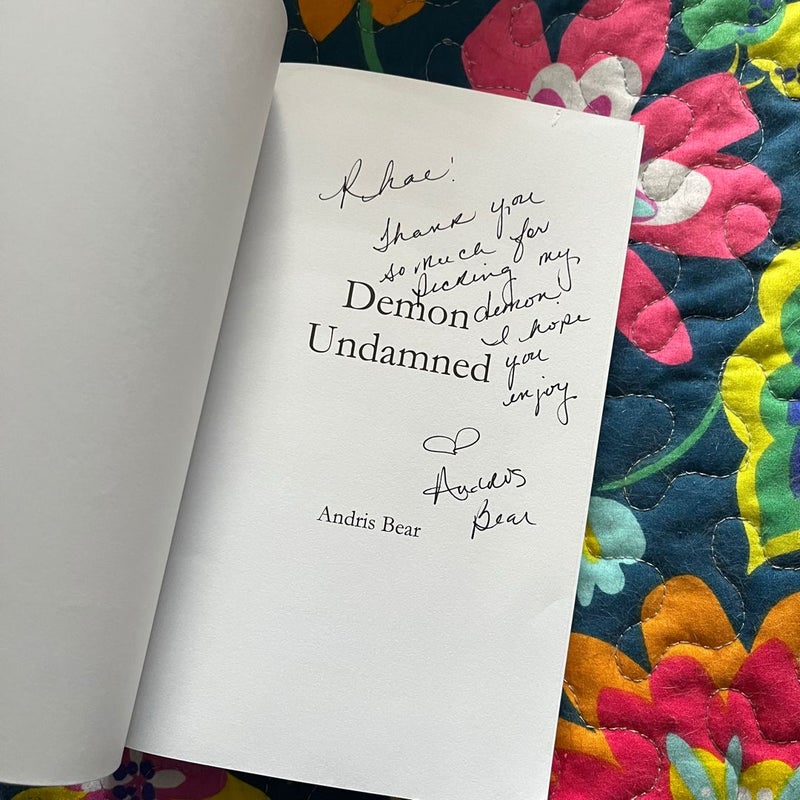 Rhae!
Thank you
so much for
picking my
demon!
I hope
you
enjoy
Demon
Undamned
♡ Andris
Bear
Andris Bear